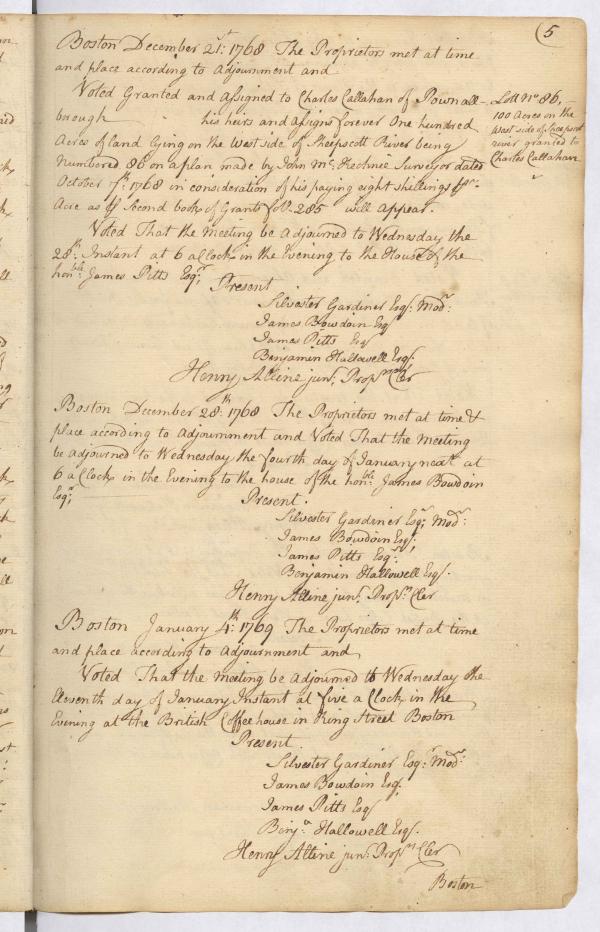 (5
Boston December 21st: 1768 The Proprietors met at time
and place according to Adjournment and
Voted Granted and assigned to Charles Callahan of Pownall-
brough his heirs and assigns forever One hundred
Acres of land lying on the West side of Sheepscott River being
Numbered 86 on a plan made by John Mc: Kechnie Surveyor dated
October 7th: 1768 in consideration of his paying eight shillings ₱r.
Acre as ₱ Second book of Grants fol: 285 will appear.
Lott No 86,
100 Acres on the
West side of Sheepscott
river granted to
Charles Callahan
Voted That the Meeting be Adjourned to Wednesday the
28th: Instant at 6 a Clock in the Evening to the House of the
honble: James Pitts Esqr;
Present.
Silvester Gardiner Esq: Modr:
James Bowdoin Esq
James Pitts Esq
Benjamin Hallowell Esq:
Henry Alline junr: Proprs Cler
Boston December 28th: 1768 The Proprietors met at time &
place according to Adjournment and Voted That the Meeting
be adjourned to Wednesday the fourth day of January next at
6 a Clock in the Evening to the house of the honble: James Bowdoin
Esqr;
Present.
Silvester Gardiner Esqr; Modr:
James Bowdoin Esq;
James Pitts Esqr:
Benjamin Hallowell Esq.
Henry Alline junr: Proprs Cler
Boston January 4th: 1769 The Proprietors met at time
and place according to Adjournment and
Voted That the Meeting be adjourned to Wednesday the
Eleventh day of January Instant at five a Clock in the
Evening at the British Coffee house in King Street Boston
Present.
Silvester Gardiner Esqr: Modr:
James Bowdoin Esq.
James Pitts Esq
Benja: Hallowell Esq.
Henry Alline junr: Proprs Cler
Boston